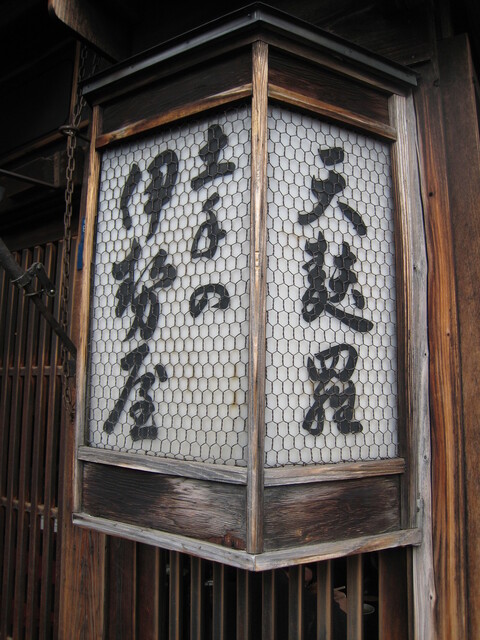 天麩羅
土手の
伊勢屋